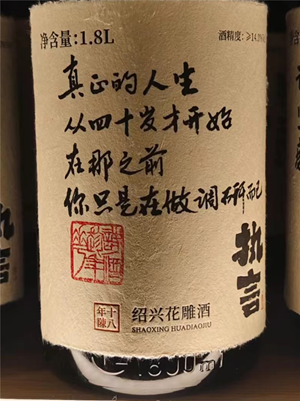 净含量:1.8L
酒精度:≥14.
真正的人生
从四十岁才开始
在那之前
你只是在做调研而已
执言
十八
年陳
绍兴花雕酒
SHAOXING HUADIAOJIU